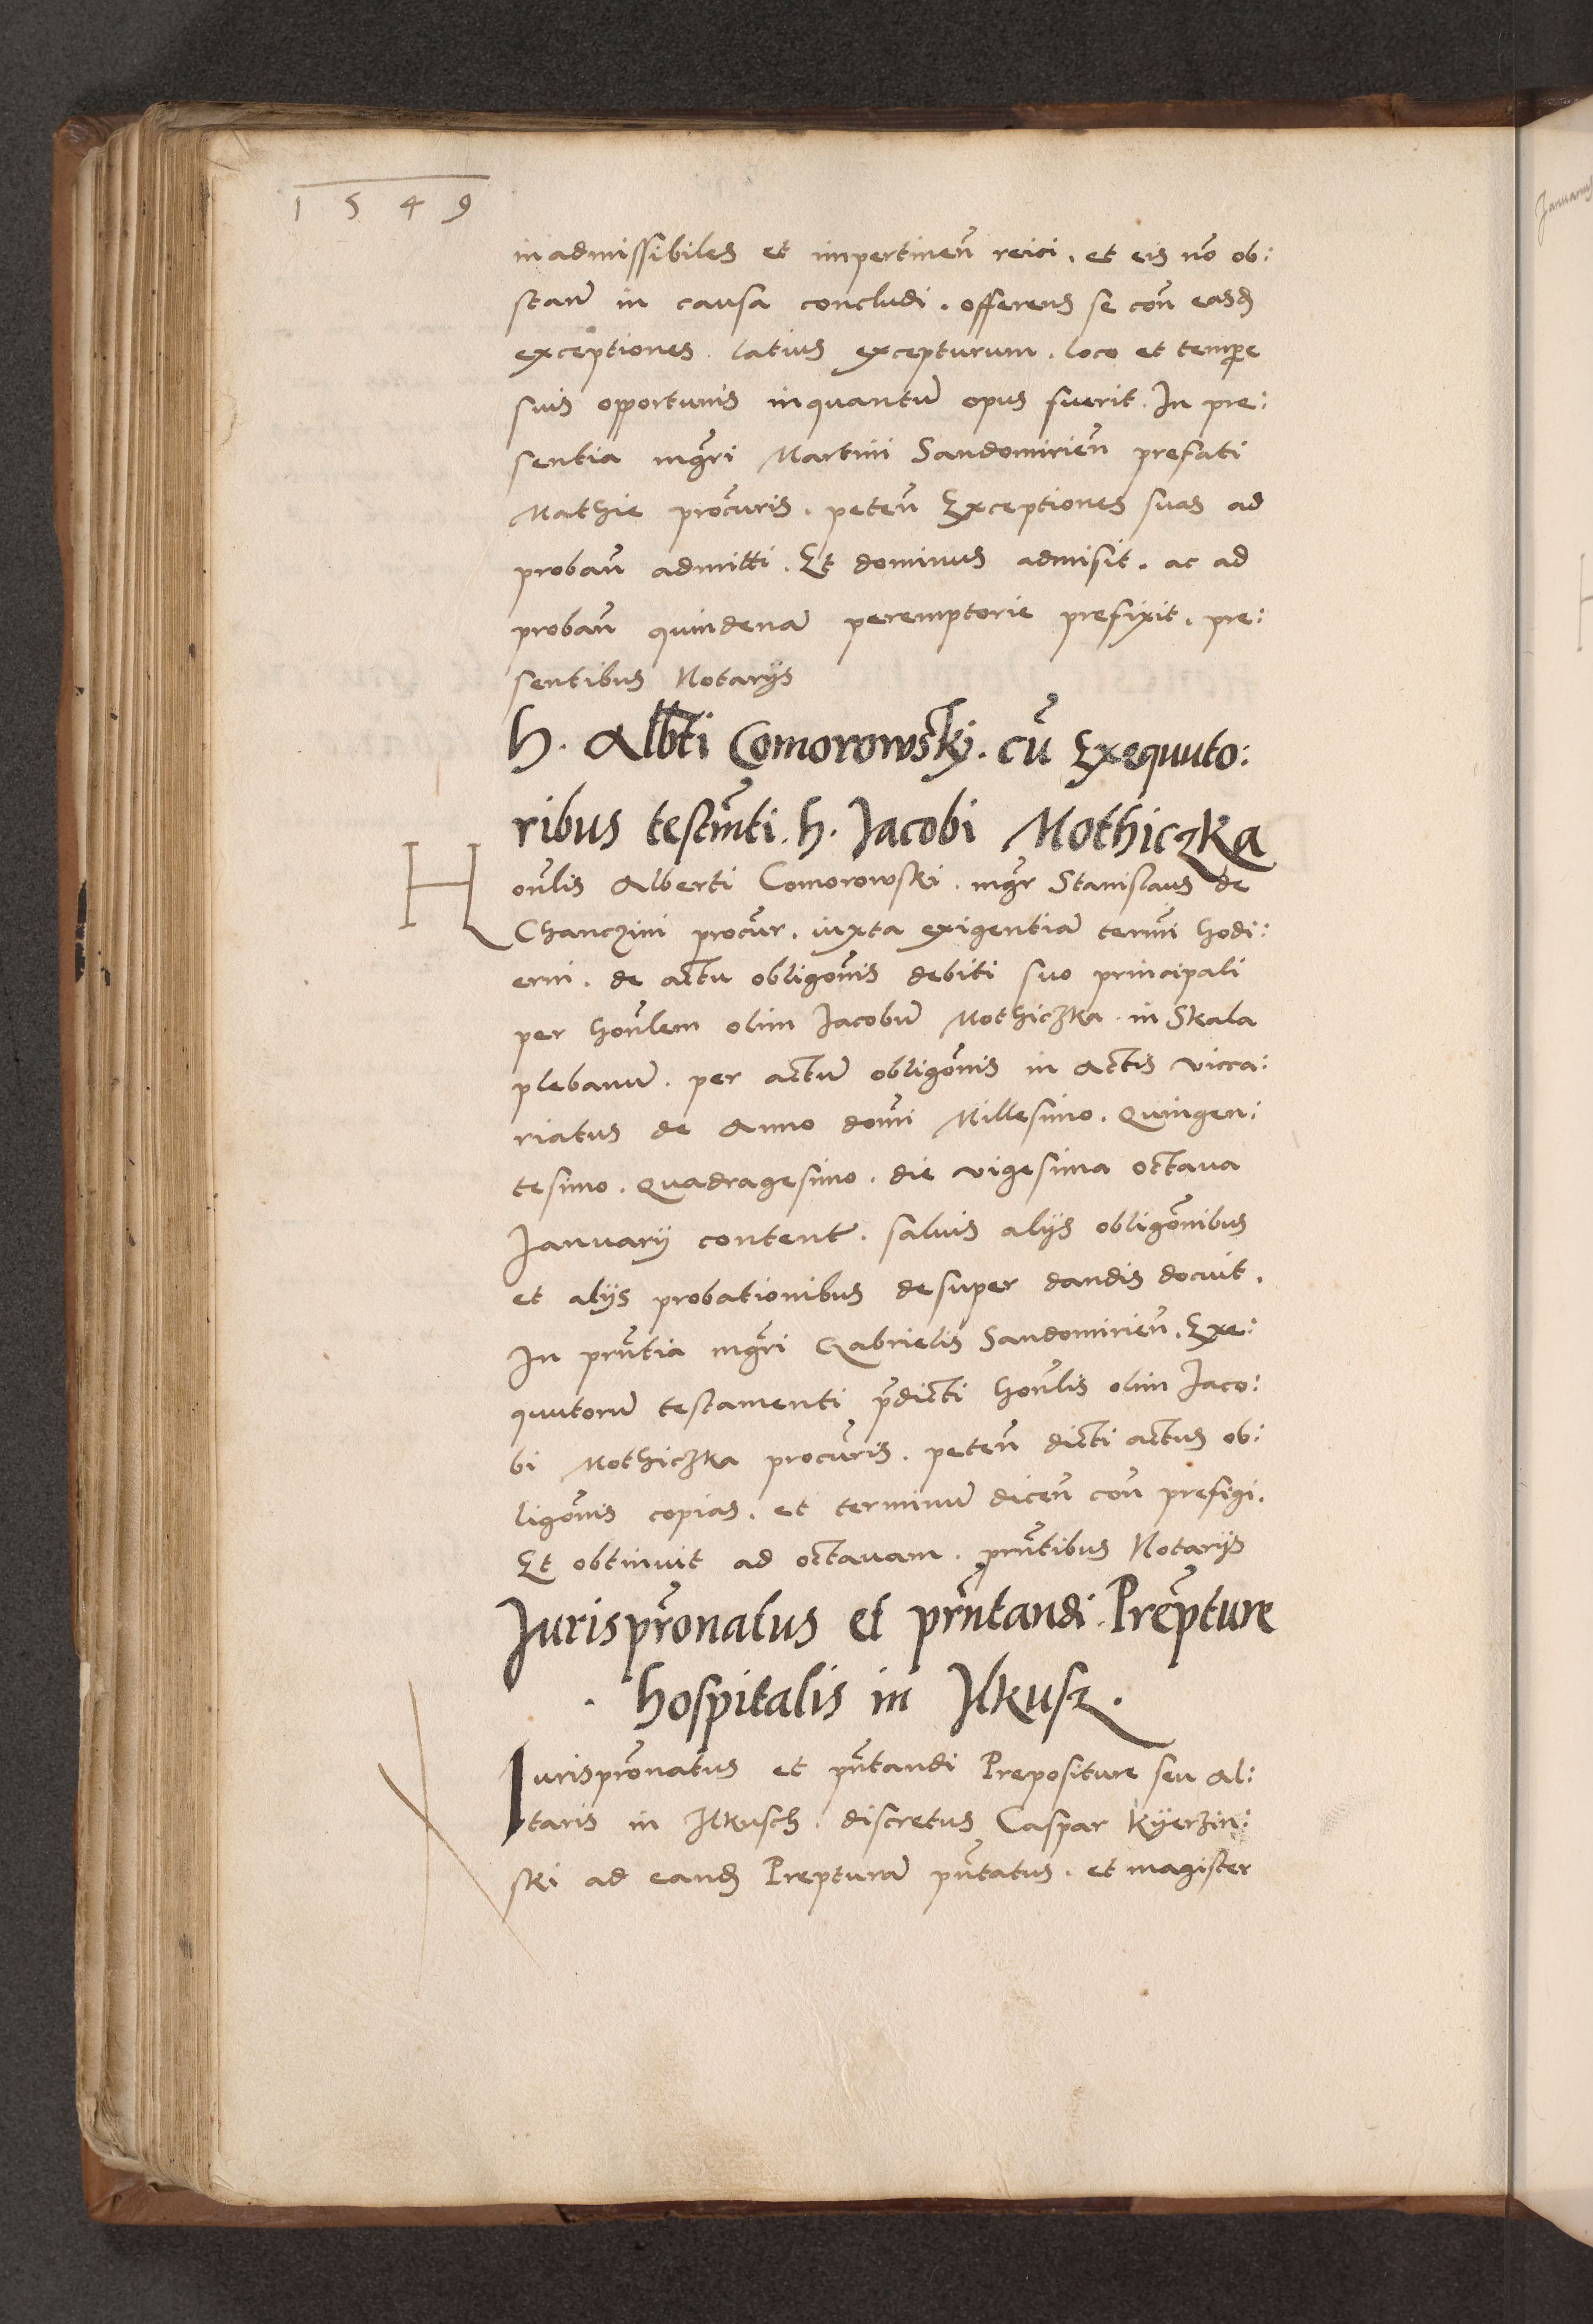 1549
inadmissibiles et impertineñ reici. et eis nõ ob:
stañ in causa concludi. offerens se coñ easdẽ
exceptiones latius excepturum. loco et tempe
suis opportunis inquantũ opus fuerit. In pre:
sentia mgri Martini Sandomirieñ prefati
Mathie procuris. peteñ Exceptiones suas ad
probañ admitti. Et dominus admisit. ac ad
probañ quindenã peremptorie prefixit. pre:
sentibus Notarijs
h. Albti Comorowskj. cũ Exequuto:
ribus testmti. h. Jacobi Mothiczka
Honlis Alberti Comorowski. mgr Stanislaus de
Chanczini procur. iuxta exigentiã termi hodi:
erni. de actu obligonis debiti suo principali
per honlem olim Jacobũ Mothiczka in Skala
plebanũ. per actũ obligonis in Actis vicca:
riatus de Anno domi Millesimo. Quingen:
tesimo. Quadragesimo. die vigesima octaua
Januarij content. saluis alijs obligonibus
et alijs probationibus desuper dandis docuit.
In prntia mgri Gabrielis Sandomirieñ. Exe:
quutorũ testamenti pdicti honlis olim Jaco:
bi Mothiczka procuris. peteñ dicti actus ob:
ligonis copias. et terminũ diceñ coñ prefigi.
Et obtinuit ad octauam. prntibus Notarijs
Jurispronatus et prntandi. Prepture
. hospitalis in Ilkusz.
Jurispronatus et pntandi Prepositure seu Al:
taris in Ilkusch. discretus Caspar Kyerzin:
ski ad eandẽ Prepturã pntatus. et magister
Januarij